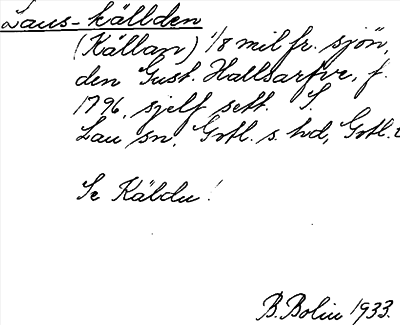 Laus-källden
(Källan) 1/8 mil fr. sjön,
den Gust. Hallsarfve, f.
1796, sjelf sett. S.
Lau sn, Gotl. s. hd, Gotl.
Se Käldu!
B. Bolin 1933.